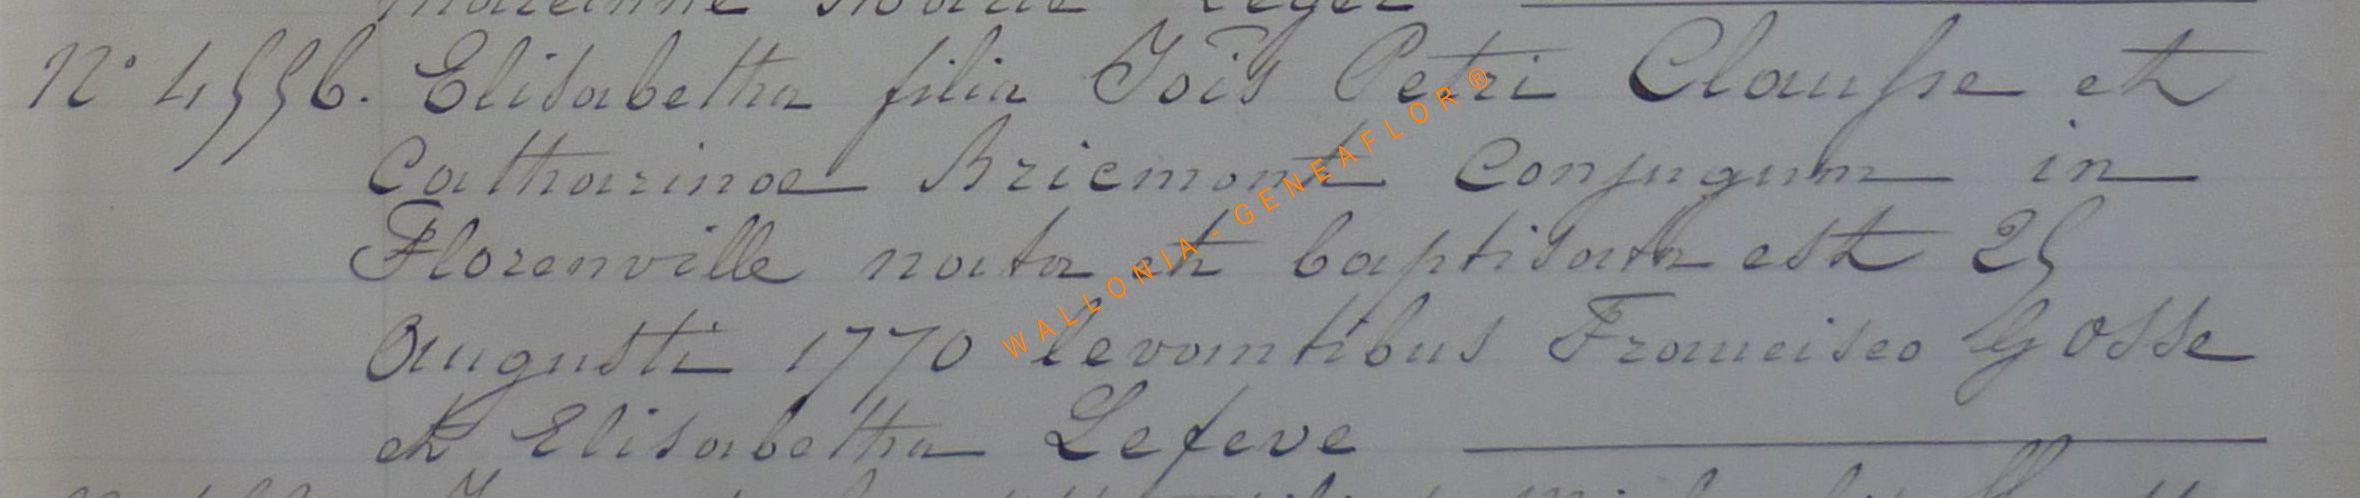 Marianne Rosalie Leger
N° 4556. Elisabetha filia Jois Petri Clausse et
Catharinae Briemont Conjugum in
Florenville nata et baptisata est 25
Augusti 1770 levantibus Francisco Gosse
et Elisabetha Lefeve
WALLONIA - GENEAFLOR®